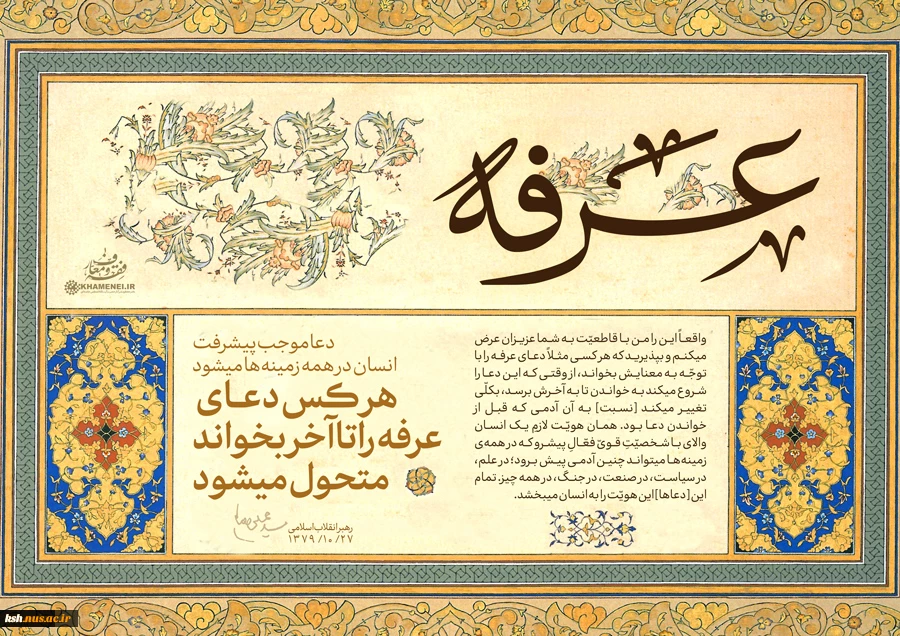 عرفه
فقه و معارف
KHAMENEI.IR
واقعاً این را من با قاطعیّت به شما عزیزان عرض
میکنم و بپذیرید که هر کسی مثلاً دعای عرفه را با
توجّه به معنایش بخواند، از وقتی که این دعا را
شروع میکند به خواندن تا به آخرش برسد، بکلّی
تغییر میکند [نسبت] به آن آدمی که قبل از
خواندن دعا بود. همان هویّت لازمِ یک انسان
والای با شخصیّتِ قویّ فعّالِ پیشرو که در همه‌ی
زمینه‌ها میتواند چنین آدمی پیش برود؛ در علم،
در سیاست، در صنعت، در جنگ، در همه چیز. تمام
این [دعاها] این هویّت را به انسان میبخشد.
دعا موجب پیشرفت
انسان در همه زمینه‌ها میشود
هر کس دعای
عرفه را تا آخر بخواند
متحول میشود
رهبر انقلاب اسلامی
۱۳۷۹/۱۰/۲۷
ksh.nus.ac.ir